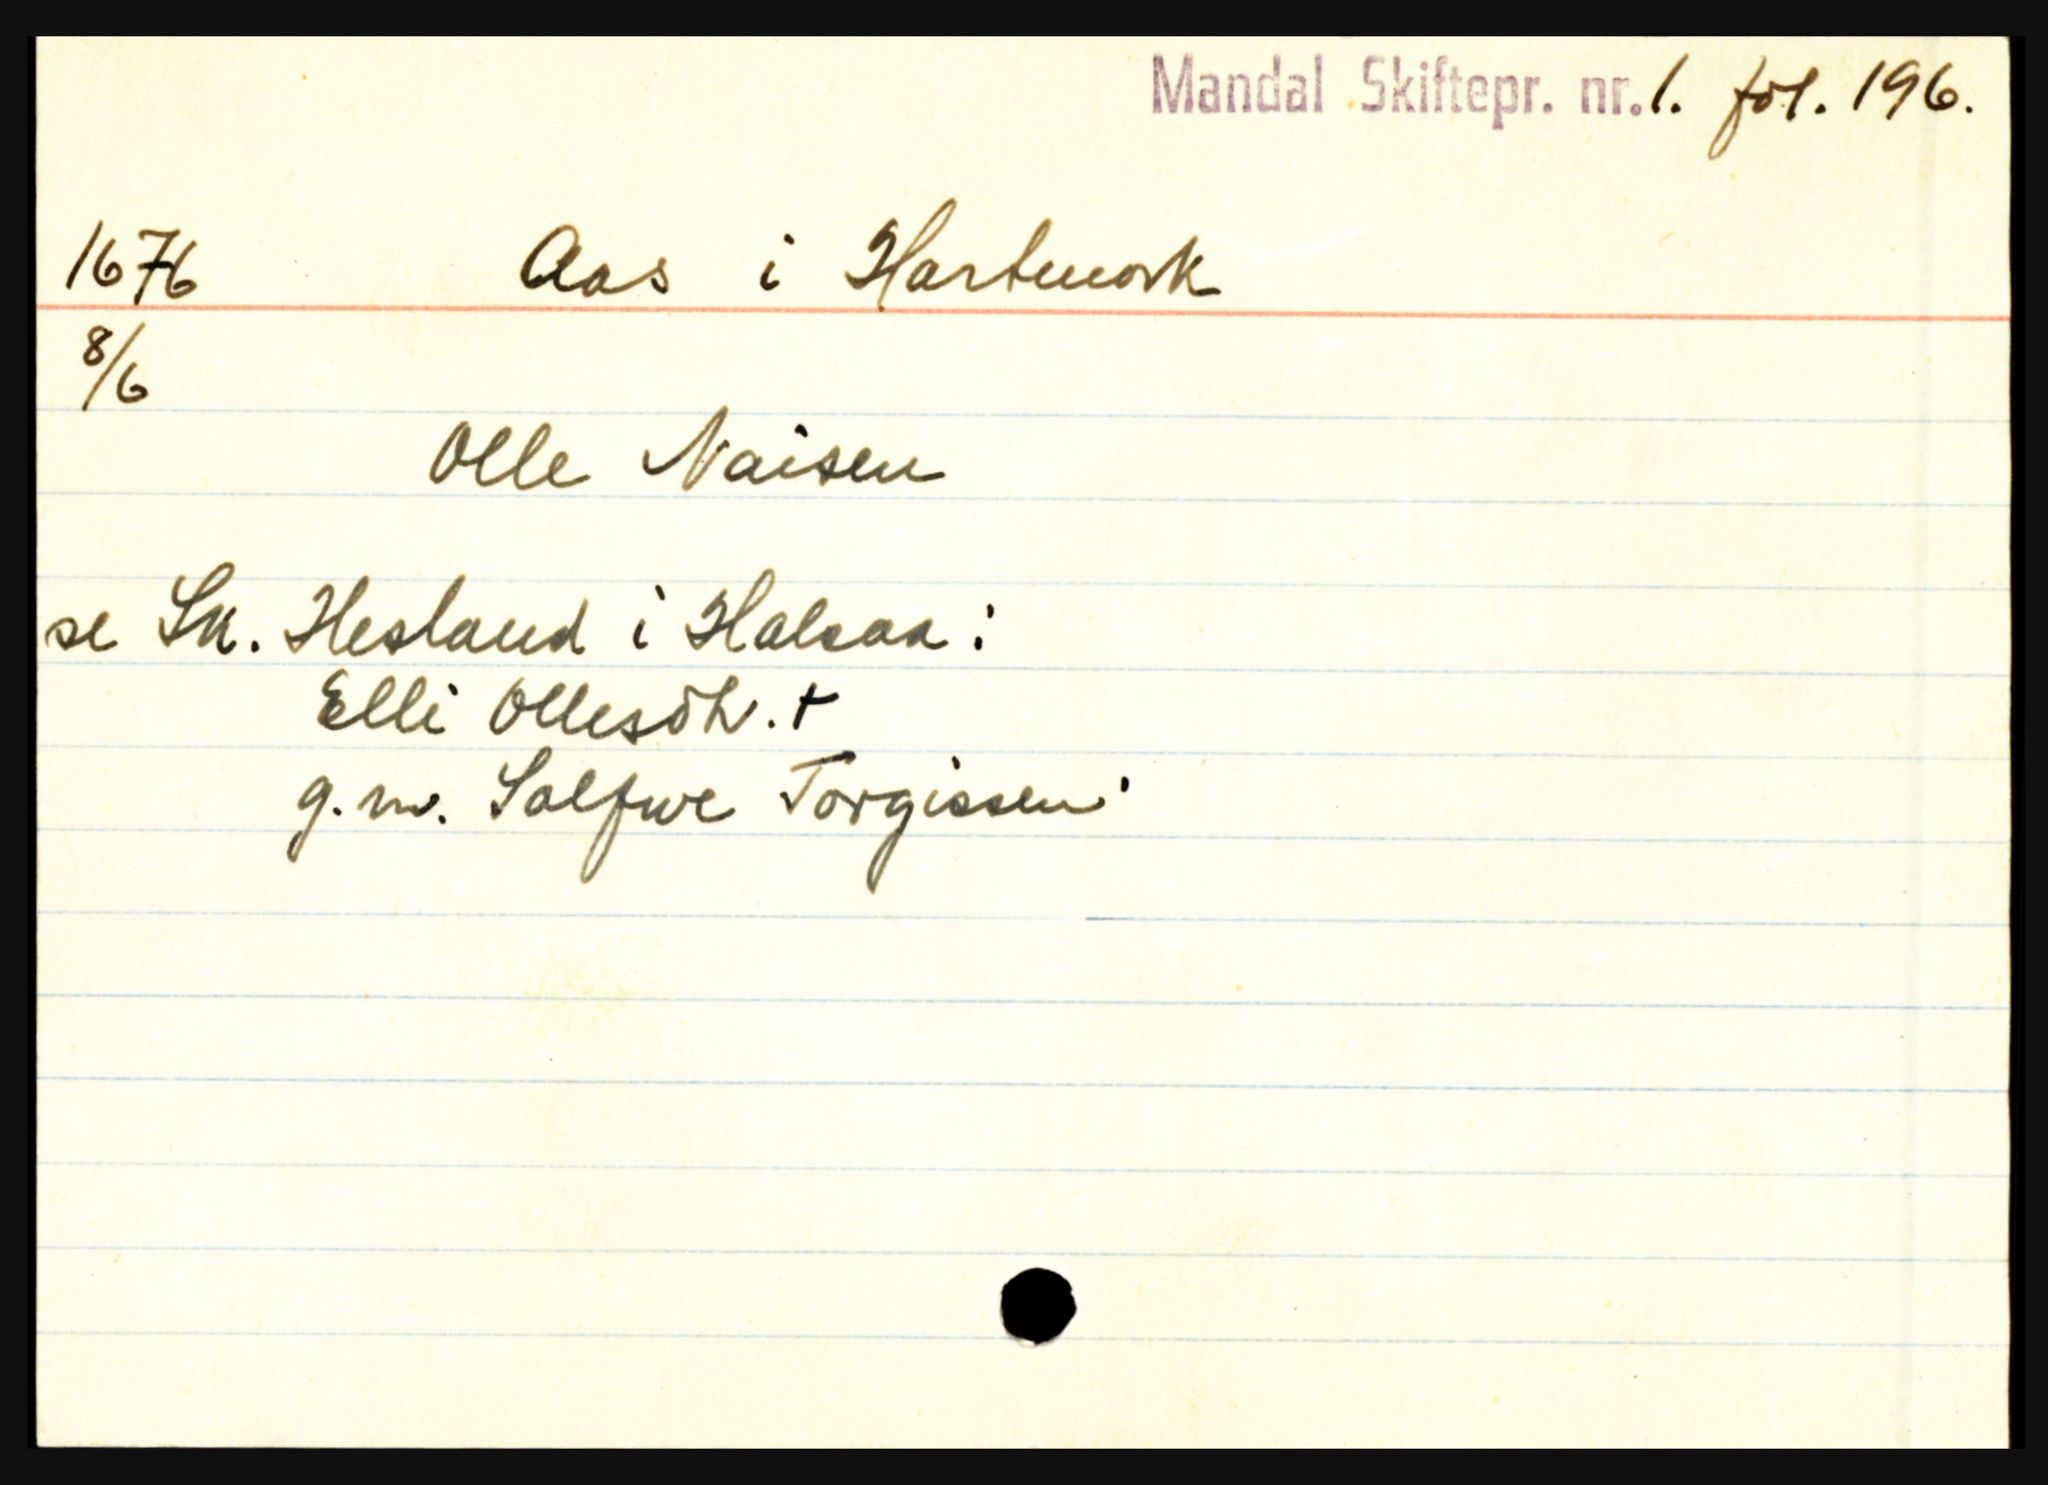 Mandal Skiftepr. nr. 1. fol. 196.
1676 Aas i Hartmork
8/6
Olle Naisen
se Sk. Hesland i Halsaa:
Elli Ollesdtr. +
g.m. Salfwe Torgissen: